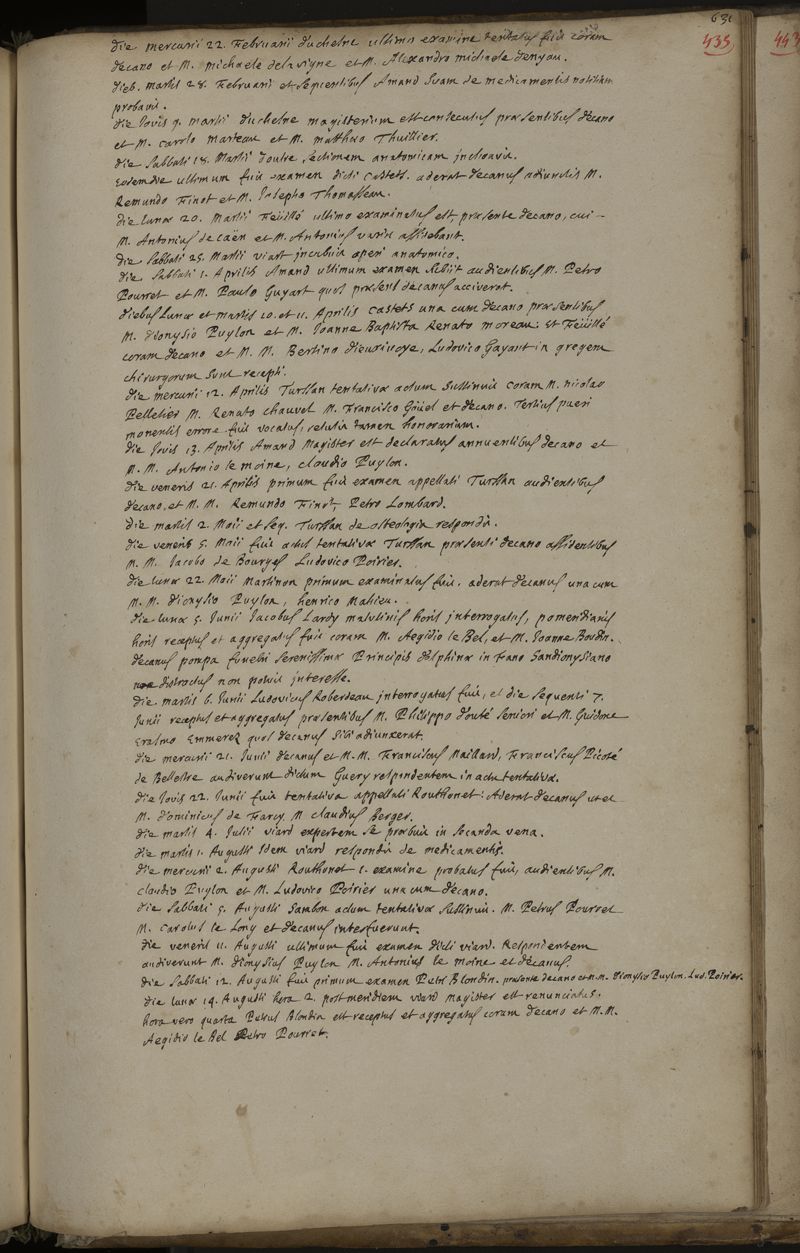 631
435
443
die mercurii 22. Februarii duchesne ultimo examine tentatus fuit coram
decano et M. michaele delavigne et M. Alexandro michaele denyau.
dieb. martis 28. Februarii et sequentibus Amand Suam de medicamentis notitiam
probavit.
die Jovis 9. martii duchesne magisterium est consecutus præsentibus decano
et M. carolo marteau et M. matthæo Thuillier.
die Sabbati 18. Martii doutre sectionem anatomicam inchoavit.
Eodem die ultimum fuit examen dicti castets. aderat decanus adiunctis M.
Remundo Finot et M. Josepho Thomasseau.
die lunæ 20. Martii Feüillé ultimo examinatus est, præsente decano, cui
M. Antonius de caën et M. Antonius varin assidebant.
die Sabbati 25. Martii viart incubuit operi anatomico.
die Sabbati 1. Aprilis Amand ultimum examen Subiit audientibus M. Petro
Pourret et M. Paulo Guyart quos præsens decanus acciverat.
diebus Lunæ et martis 10. et 11. Aprilis castets una cum decano præsentibus
M. dionysio Puylon et M. Joanne Baptista Renato moreau: et Feüillé
coram decano et M. M. Bertino dieuxivoye, Ludovico Gayant in gregem
chirurgorum sunt recepti.
die mercurii 12. Aprilis Turssan tentativæ actum sustinuit coram M. nicolao
Pelletier M. Renato chauvel M. Francisco Güel et decano. Tertius pueri
monentis errore fuit vocatus, retulit tamen honorarium.
die Jovis 13. Aprilis Amand Magister est declaratus annuentibus decano et
M. M. Antonio le moine, claudio Puylon.
die veneris 21. Aprilis primum fuit examen appellati Turssan audientibus
decano, et M. M. Remundo Finot, Petro Lombard.
die martis 2. Maii et seq. Turssan de osteologia respondit.
die veneris 5. Maii fuit actus tentativæ Turssan præsenti decano assidentibus
M. M. Jacobo de Bourges Ludovico Poirier.
die lunæ 22. Maii Martinon primum examinatus fuit, aderat decanus una cum
M. M. dionysio Puylon, henrico Mahieu.
die lunæ 5. Junii Jacobus Lardy matutinis horis interrogatus, pomeridianis
horis receptus et aggregatus fuit coram M. Aegidio le Bel, et M. Joanne Boudin.
decanus pompa funebri Serenissimæ Principis delphinæ in Fano Sandionysiano
distractus non potuit interesse.
die martis 6. Junii Ludovicus Roberdeau interrogatus fuit, et die sequenti 7.
Junii receptus et aggregatus præsentibus M. Philippo douté Seniori et M. Guidone
Erasmo Emmerez quos decanus Sibi adiunxerat.
die mercurii 21. Junii decanus et M. M. Franciscus Maillard, Franciscus Picoté
de Bellestre audiverunt dictum Guery respondentem in actu tentativæ.
die Jovis 22. Junii fuit tentativa appellati Routhonet: Aderat decanus ut et
M. dominicus de Farcy M. claudius Berger.
die martis 4. Julii viard expertem Se præbuit in secanda vena.
die martis 1. Augusti Idem viard respondit de medicamentis.
die mercurii 2. Augusti Routhonet 1. examine probatus fuit, audientibus M.
claudio Puylon et M. Ludovico Poirier una cum decano.
die Sabbati 5. Augusti Sambon actum tentativæ sustinuit. M. Petrus Pourret
M. carolus le Long et decanus interfuerunt.
die veneris 11. Augusti ultimum fuit examen dicti viard. Respondentem
audiverunt M. dionysius Puylon M. Antonius le moine et decanus.
die Sabbati 12. Augusti fuit primum examen Petri Blondin. præsente decano et M. M. dionysio Puylon. Lud. Poirier.
die lunæ 14. Augusti hora 2. postmeridiem viard magister est renunciatus.
hora vero quarta Petrus Blondin est receptus et aggregatus coram decano et M. M.
Aegidio le Bel Petro Pourret.